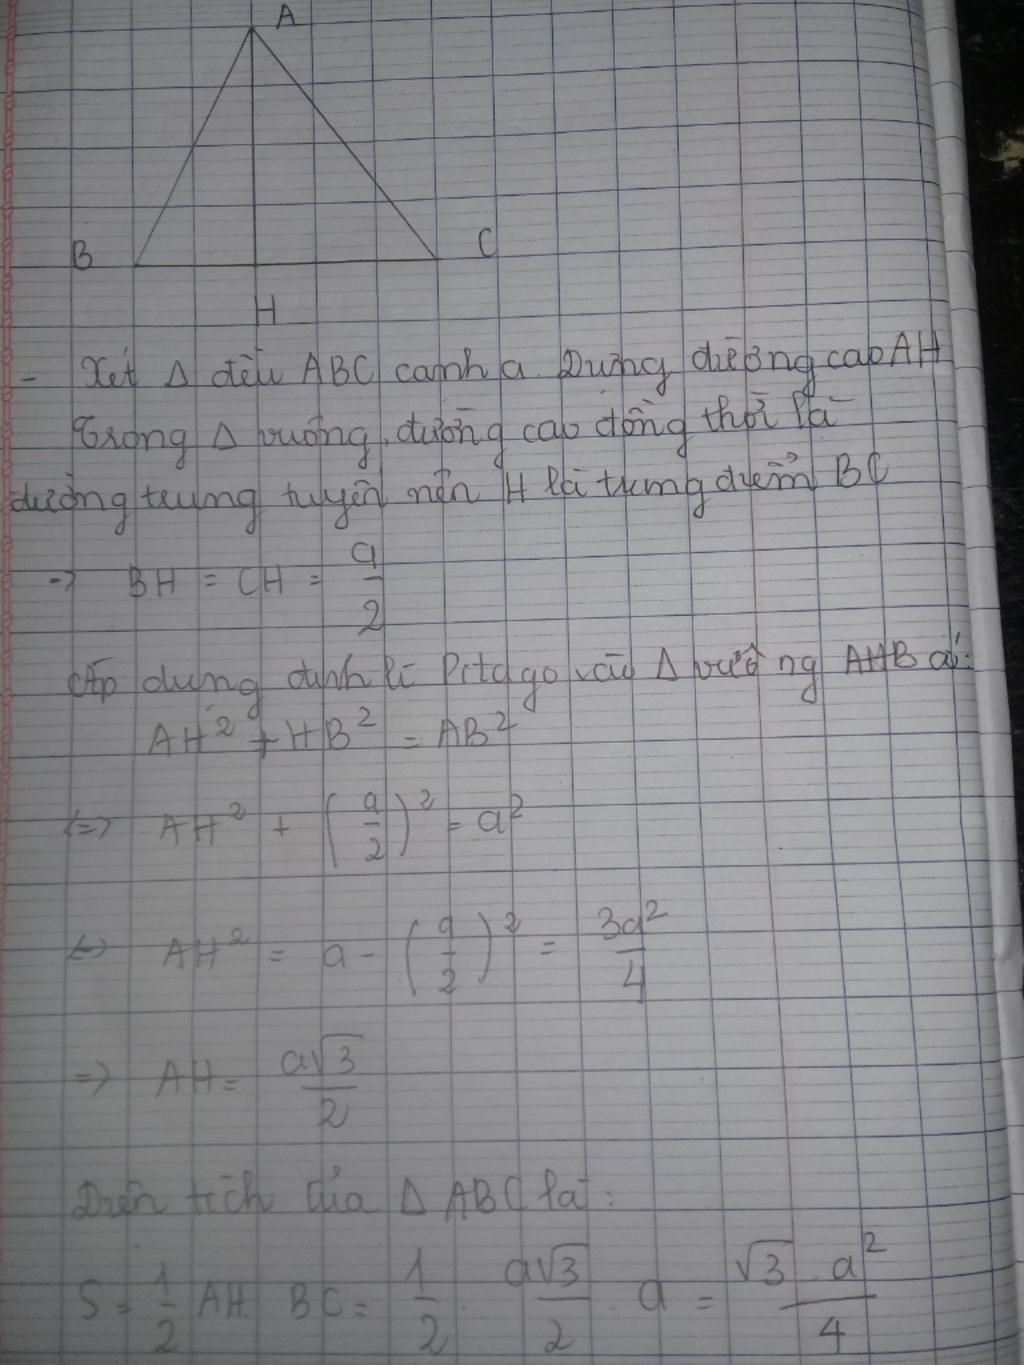 A
B
C
H
- Xét Δ đều ABC cạnh a. Dựng đường cao AH
Trong Δ vuông, đường cao đồng thời là
đường trung tuyến nên H là trung điểm BC
=> BH = CH = a/2
Áp dụng định lí Pitago vào Δ vuông AHB có:
AH² + HB² = AB²
<=> AH² + (a/2)² = a²
<=> AH² = a - (a/2)² = 3a²/4
=> AH = a√3/2
Diện tích của Δ ABC là:
S = 1/2 AH. BC = 1/2 . a√3/2 . a = √3 . a²/4